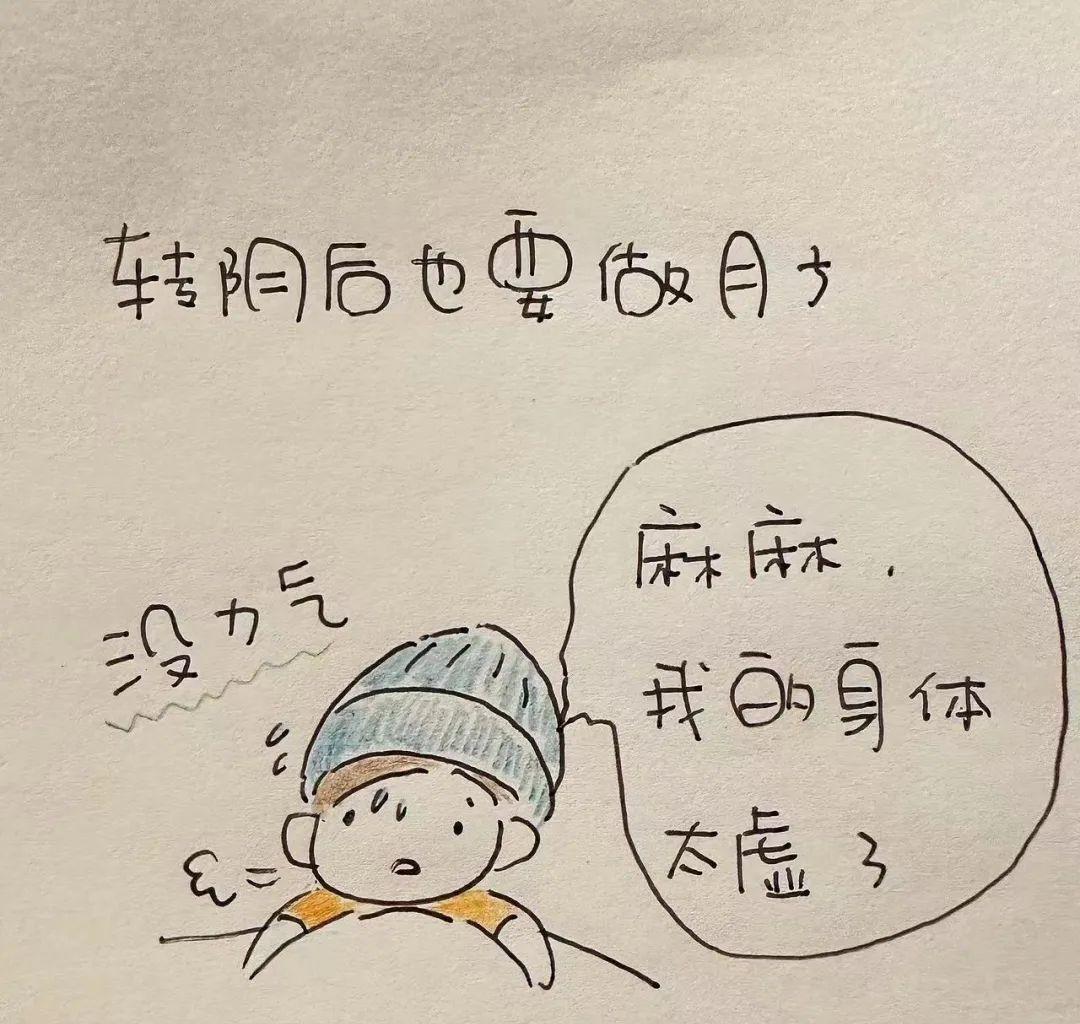 转阴后也要做月子
没力气
麻麻,
我的身体
太虚了